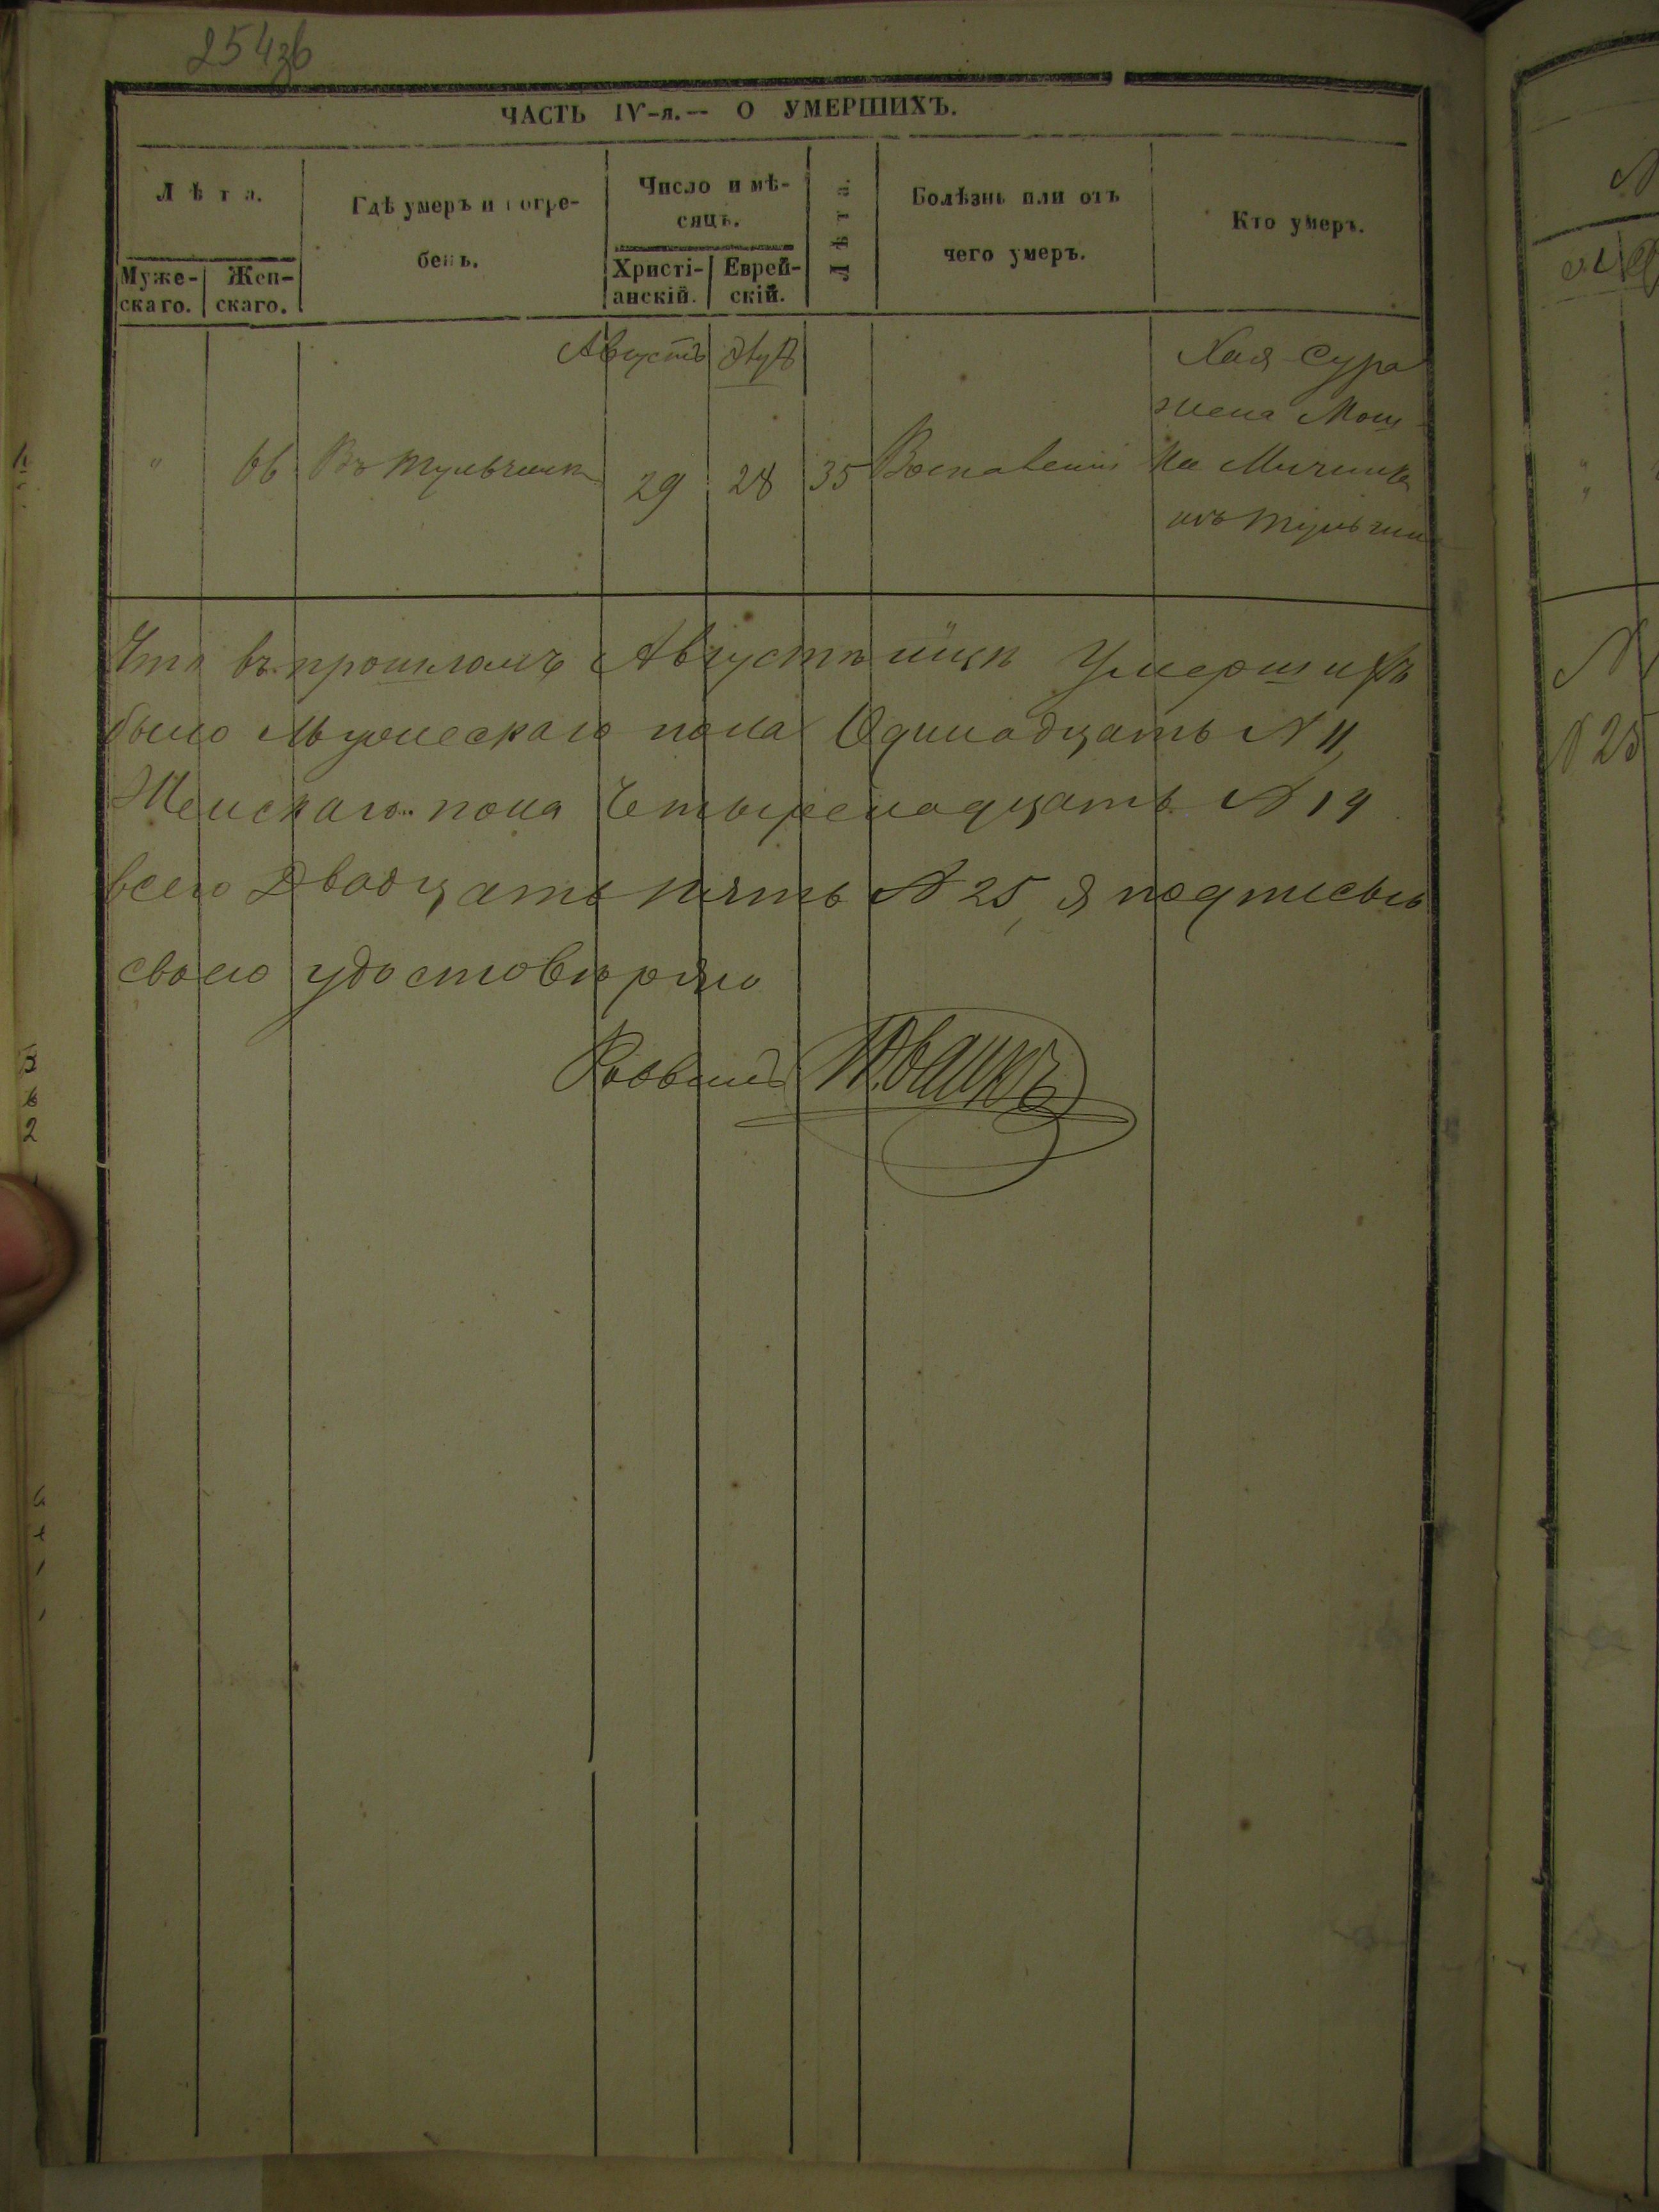 254зв
ЧАСТЬ IV-я.— О УМЕРШИХЪ.
Лѣта.
Муже-
скаго.
Жен-
скаго.
Гдѣ умеръ и погре-
бенъ.
Число и мѣ-
сяцъ.
Христі-
анскій.
Еврей-
скій.
Лѣта.
Болѣзнь или отъ
чего умеръ.
Кто умеръ.
Августъ
" 66 Въ Тульчинѣ 29 28 35 Воспаленія
Хая Сура
жена Мош
ка
изъ Тульчина
Что въ прошломъ Августѣ м-цѣ Умершихъ
было Мужескаго пола Одинадцать N 11,
Женскаго пола Четыренадцать N 14
всего Двадцать пять N 25, я подписью
своею удостовѣряю
Раввинъ
N 25